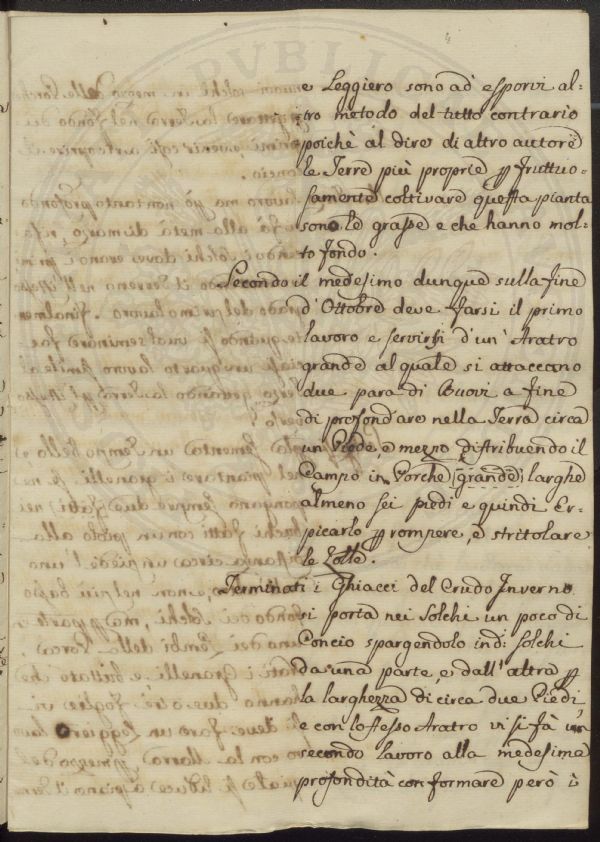 e Leggiero sono ad esporvi al=
tro metodo del tutto contrario
poichè al dire di altro autore
le Terre più proprie p fruttuo=
samente coltivare questa pianta
sono le grasse e che hanno mol=
to fondo.
Secondo il medesimo dunque sulla fine
d'Ottobre deve farsi il primo
lavoro e servirsi d'un Aratro
grande al quale si attaccano
due para di Buovi a fine
di profondare nella Terra circa
un Piede e mezzo distribuendo il
Campo in Porche grande larghe
almeno sei piedi e quindi Er=
picarlo p rompere, e stritolare
le Zolle.
Terminati i Ghiacci del Crudo Inverno
si porta nei Solchi un poco di
Concio spargendolo indi Solchi
da una parte, e dall'altra p
la larghezza di circa due Piedi,
e con lo stesso Aratro vi si fà un
secondo lavoro alla medesima
profondità con formare però i